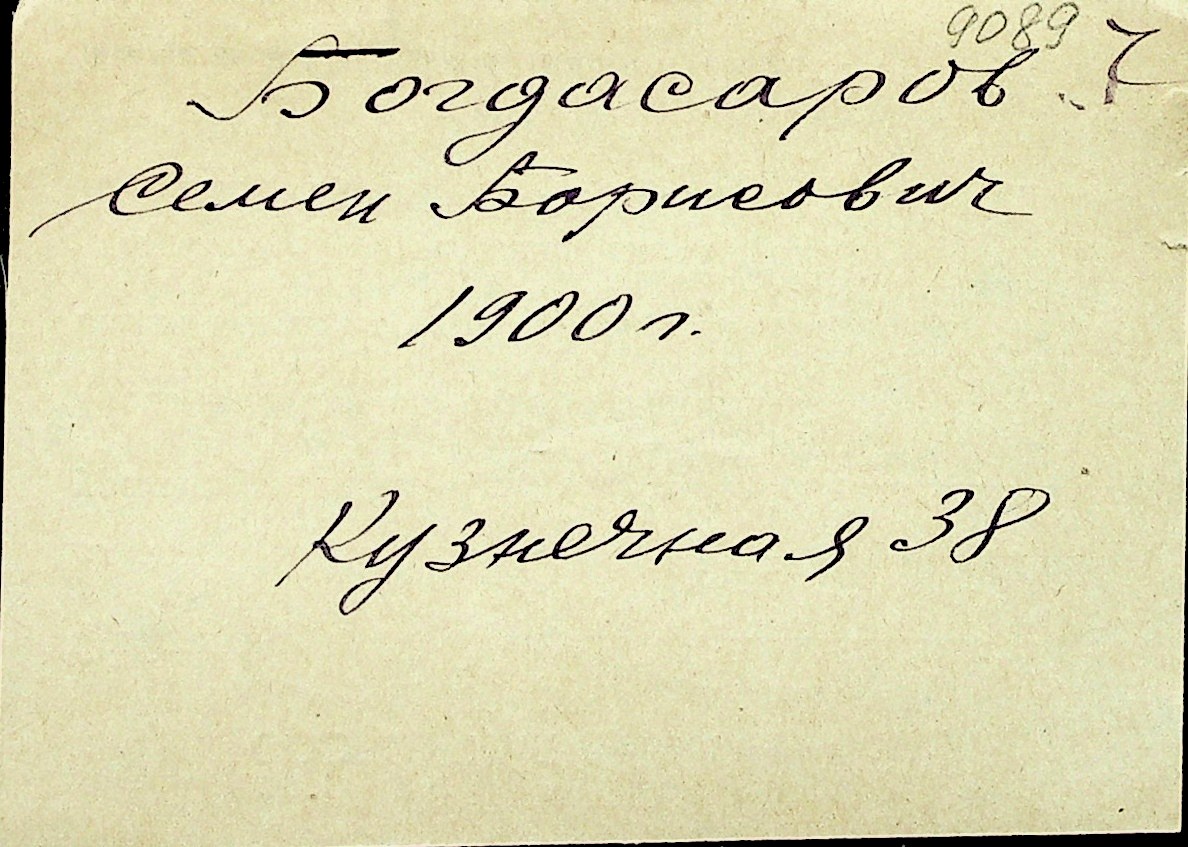 9089
Богдасаров
Семен Борисович
1900 г.
Кузнечная 38